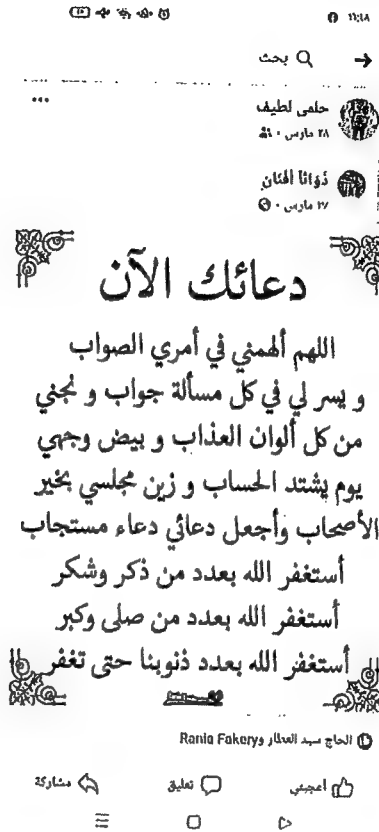 ١١:١٨
بحث
حلمى لطيف
٢٨ مارس
ذَوَاتَا أَفْنَانٍ
٢٧ مارس
دعائك الآن
اللهم ألهمني في أمري الصواب
و يسر لي في كل مسألة جواب و نجني
من كل ألوان العذاب و بيض وجهي
يوم يشتد الحساب و زين مجلسي بخير
الأصحاب وأجعل دعائي دعاء مستجاب
أستغفر الله بعدد من ذكر وشكر
أستغفر الله بعدد من صلى وكبر
أستغفر الله بعدد ذنوبنا حتى تغفر
الحاج سيد العطار وRania Fakery
أعجبني
تعليق
مشاركة